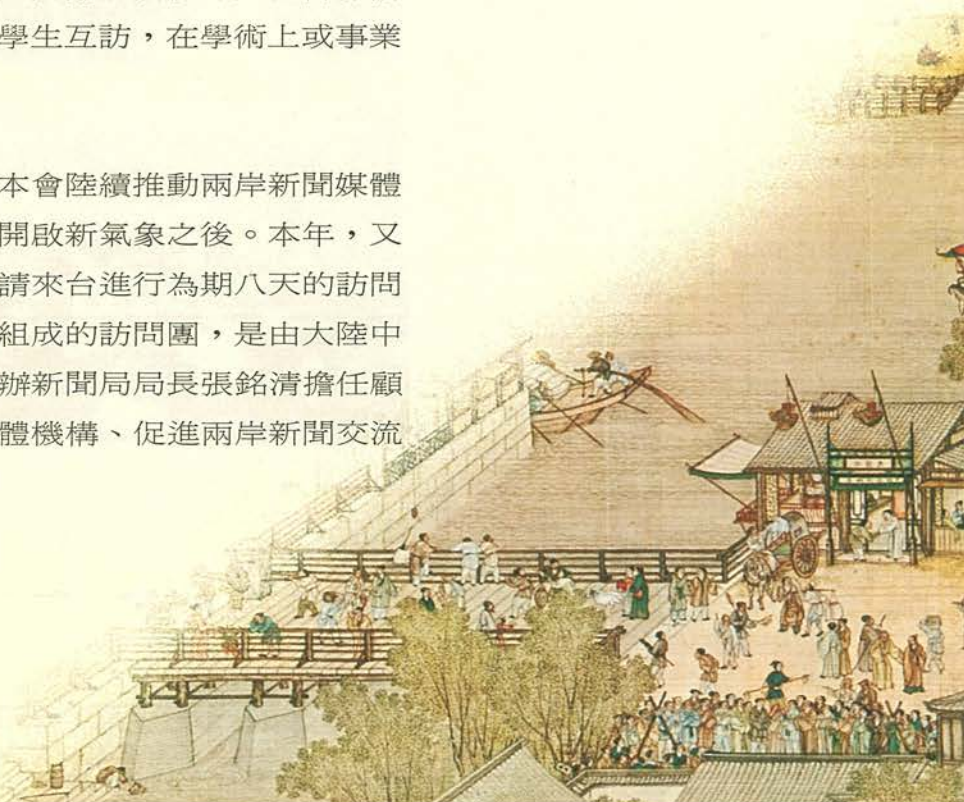 學生互訪，在學術上或事業
本會陸續推動兩岸新聞媒體
開啟新氣象之後。本年，又
請來台進行為期八天的訪問
組成的訪問團，是由大陸中
辦新聞局局長張銘清擔任顧
體機構、促進兩岸新聞交流